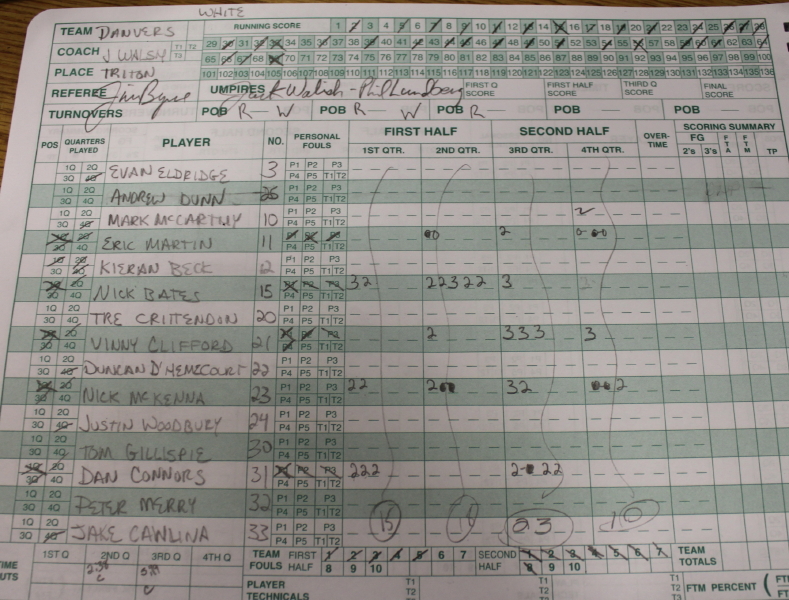 WHITE
TEAM DANVERS RUNNING SCORE 1 2 3 4 5 6 7 8 9 10 11 12 13 14 15 16 17 18 19 20 21 22 23 24 25 26 27 28
COACH J WALSH T1 T2 T3 29 30 31 32 33 34 35 36 37 38 39 40 41 42 43 44 45 46 47 48 49 50 51 52 53 54 55 56 57 58 59 60 61 62 63 64
65 66 67 68 69 70 71 72 73 74 75 76 77 78 79 80 81 82 83 84 85 86 87 88 89 90 91 92 93 94 95 96 97 98 99 100
PLACE TRITON 101 102 103 104 105 106 107 108 109 110 111 112 113 114 115 116 117 118 119 120 121 122 123 124 125 126 127 128 129 130 131 132 133 134 135 136
REFEREE Jim Byrne UMPIRES Jack Walsh - Phil Lundberg FIRST Q SCORE FIRST HALF SCORE THIRD Q SCORE FINAL SCORE
TURNOVERS POB R — W POB R — W POB R — POB — POB
POS QUARTERS PLAYED PLAYER NO. PERSONAL FOULS FIRST HALF SECOND HALF OVER-TIME SCORING SUMMARY
1ST QTR. 2ND QTR. 3RD QTR. 4TH QTR. FG 2's 3's FTA FTM TP
1Q 2Q 3Q 4Q EVAN ELDRIDGE 3 P1 P2 P3 P4 P5 T1 T2
1Q 2Q 3Q 4Q ANDREW DUNN P1 P2 P3 P4 P5 T1 T2
1Q 2Q 3Q 4Q MARK MCCARTHY 10 P1 P2 P3 P4 P5 T1 T2 2
1Q 2Q 3Q 4Q ERIC MARTIN 11 P1 P2 P3 P4 P5 T1 T2 2
1Q 2Q 3Q 4Q KIERAN BECK 2 P1 P2 P3 P4 P5 T1 T2
1Q 2Q 3Q 4Q NICK BATES 15 P1 P2 P3 P4 P5 T1 T2 32 22322 3
1Q 2Q 3Q 4Q TRE CRITTENDON 20 P1 P2 P3 P4 P5 T1 T2
1Q 2Q 3Q 4Q VINNY CLIFFORD 21 P1 P2 P3 P4 P5 T1 T2 2 333 3
1Q 2Q 3Q 4Q DUNCAN D'HEMECOURT 22 P1 P2 P3 P4 P5 T1 T2
1Q 2Q 3Q 4Q NICK MCKENNA 23 P1 P2 P3 P4 P5 T1 T2 22 2 32 2
1Q 2Q 3Q 4Q JUSTIN WOODBURY 24 P1 P2 P3 P4 P5 T1 T2
1Q 2Q 3Q 4Q TOM GILLISPIE 30 P1 P2 P3 P4 P5 T1 T2
1Q 2Q 3Q 4Q DAN CONNORS 31 P1 P2 P3 P4 P5 T1 T2 222 2 22
1Q 2Q 3Q 4Q PETER MERRY 32 P1 P2 P3 P4 P5 T1 T2
1Q 2Q 3Q 4Q JAKE CAWLINA 33 P1 P2 P3 P4 P5 T1 T2 15 23 10
1ST Q 2ND Q 3RD Q 4TH Q TEAM FOULS FIRST HALF 1 2 3 4 5 6 7 8 9 10 SECOND HALF 1 2 3 4 5 6 7 8 9 10 TEAM TOTALS
PLAYER TECHNICALS T1 T2 T1 T2 T3 T1 T2 T3 FTM PERCENT